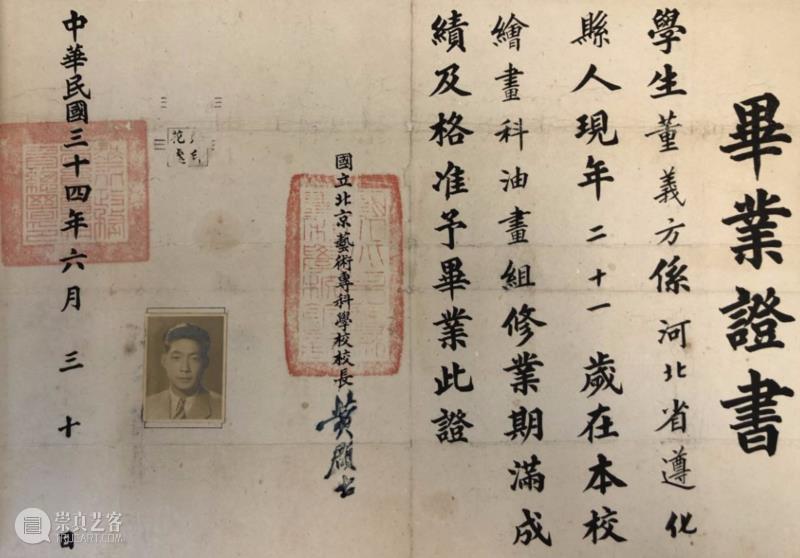 畢業證書
學生董義方係河北省遵化
縣人現年二十一歲在本校
繪畫科油畫組修業期滿成
績及格准予畢業此證
國立北京藝術專科學校校長
中華民國三十四年六月三十日
崇真艺客
TRUEART.COM